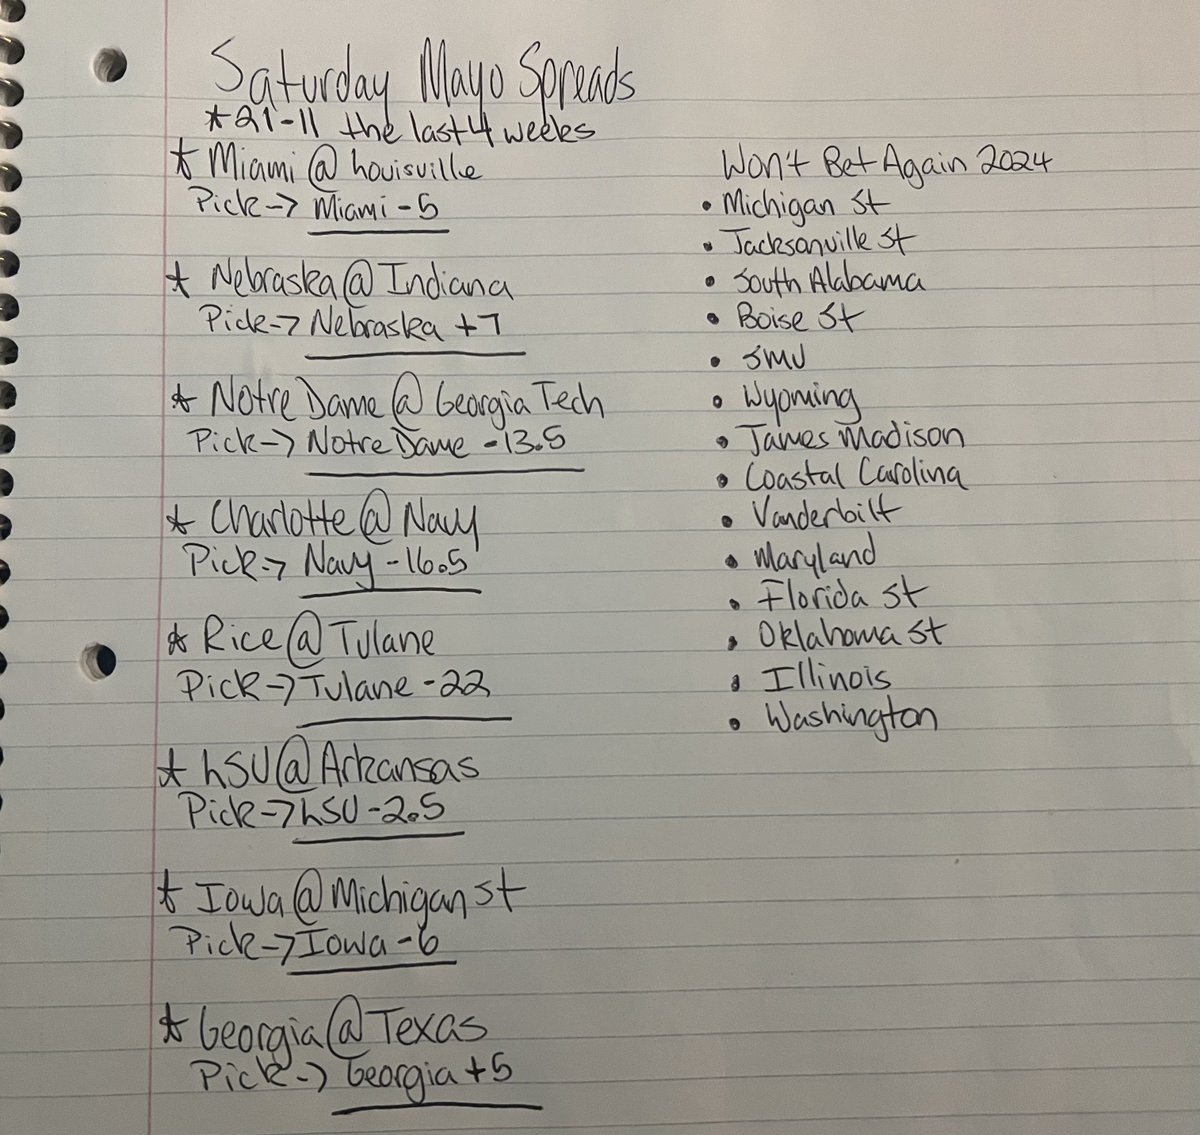 Saturday Mayo Spreads
*21-11 the last 4 weeks
* Miami @ Louisville
Pick -> Miami -5
* Nebraska @ Indiana
Pick -> Nebraska +7
* Notre Dame @ Georgia Tech
Pick -> Notre Dame -13.5
* Charlotte @ Navy
Pick -> Navy -16.5
* Rice @ Tulane
Pick -> Tulane -22
* LSU @ Arkansas
Pick -> LSU -2.5
* Iowa @ Michigan St
Pick -> Iowa -6
* Georgia @ Texas
Pick -> Georgia +5
Won't Bet Again 2024
• Michigan St
• Jacksonville St
• South Alabama
• Boise St
• SMU
• Wyoming
• James Madison
• Coastal Carolina
• Vanderbilt
• Maryland
• Florida St
• Oklahoma St
• Illinois
• Washington